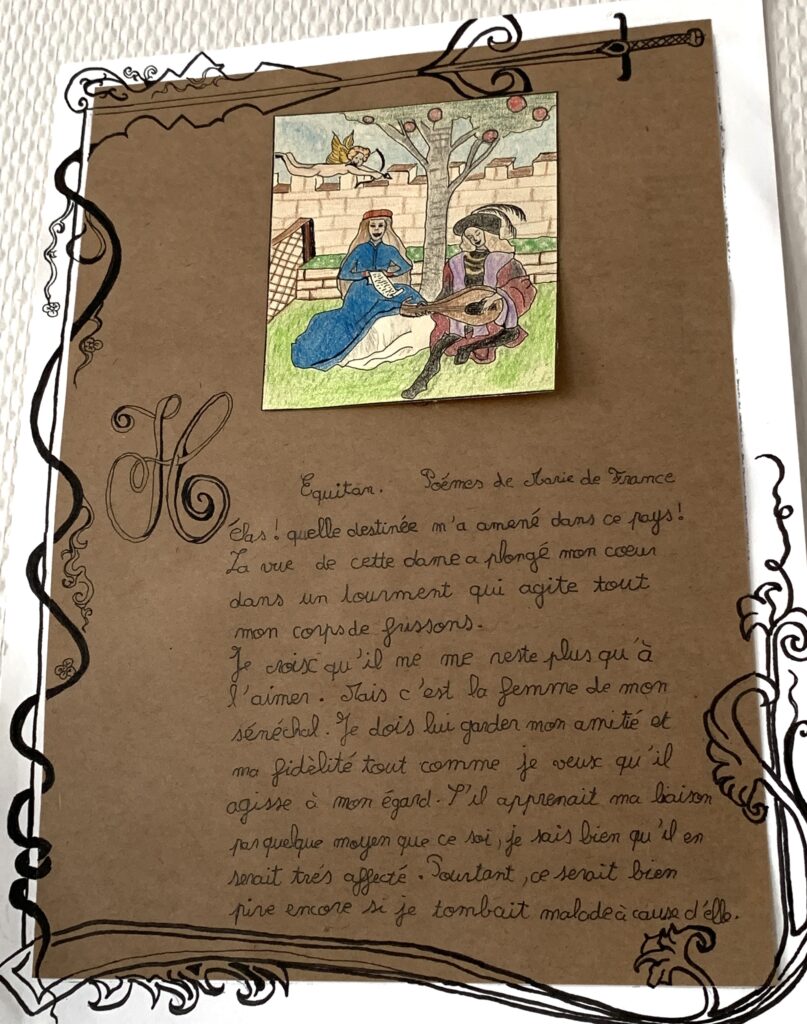 Equitan. Poémes de Marie de France
Hélas ! quelle destinée m'a amené dans ce pays !
La vue de cette dame a plongé mon coeur
dans un tourment qui agite tout
mon corps de frissons.
Je croix qu'il me me reste plus qu'à
l'aimer. Mais c'est la femme de mon
sénéchal. Je dois lui garder mon amitié et
ma fidèlité tout comme je veux qu'il
agisse à mon égard. S'il apprenait ma liaison
par quelque moyen que ce soi, je sais bien qu'il en
serait trés affecté. Pourtant, ce serait bien
pire encore si je tombait malade à cause d'elle.